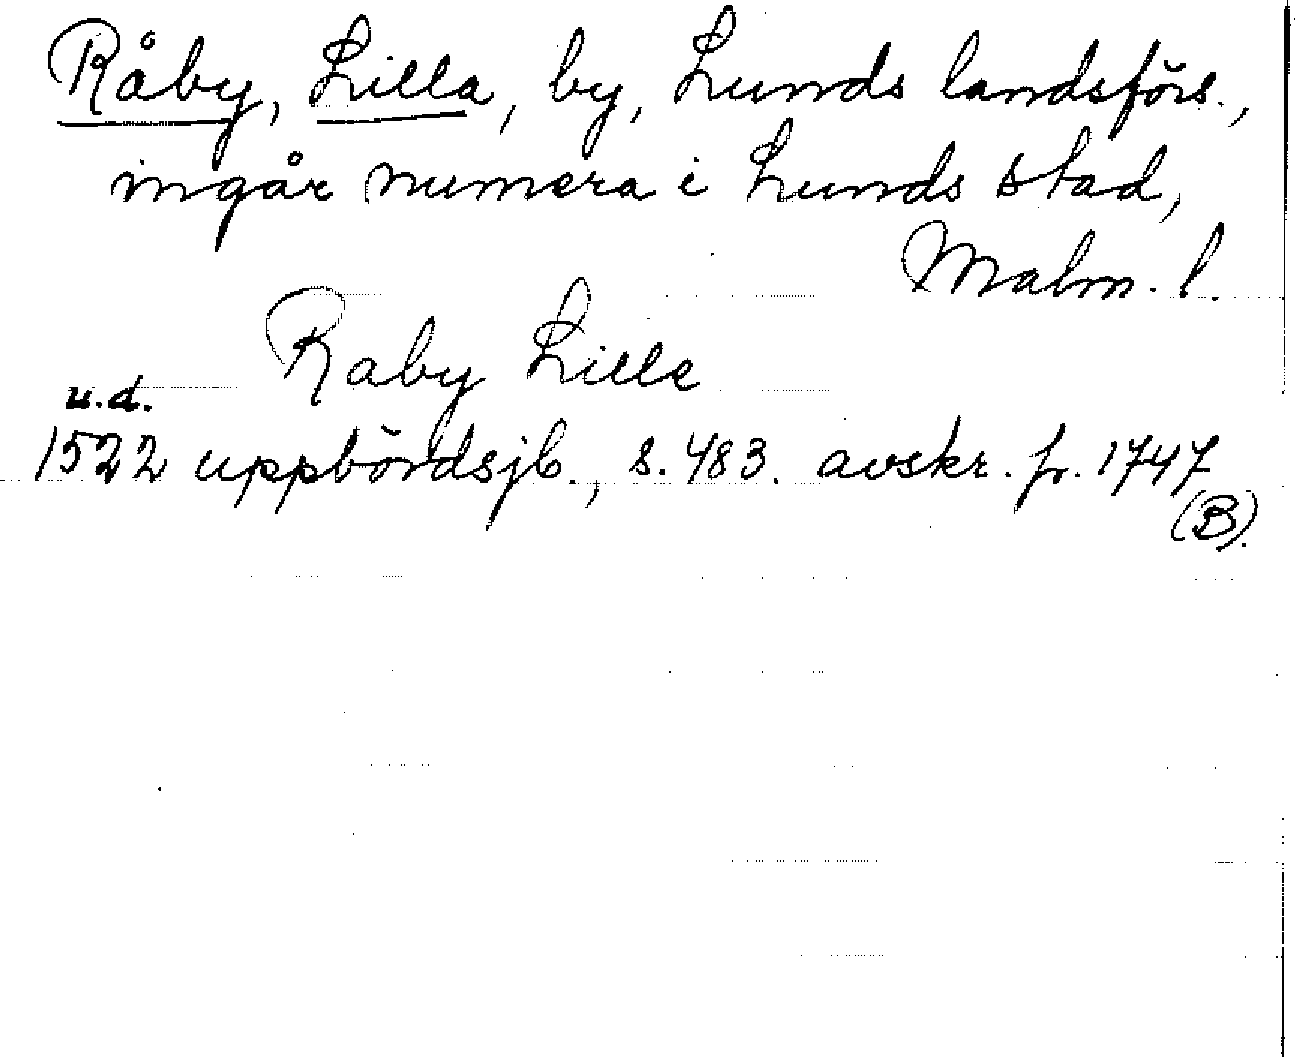 Råby, Lilla, by, Lunds landsförs.,
ingår numera i Lunds stad,
Malm. l.
Raby Lille
u.d.
1522 uppbördsjb., s. 483. avskr. fr. 1747
(B).